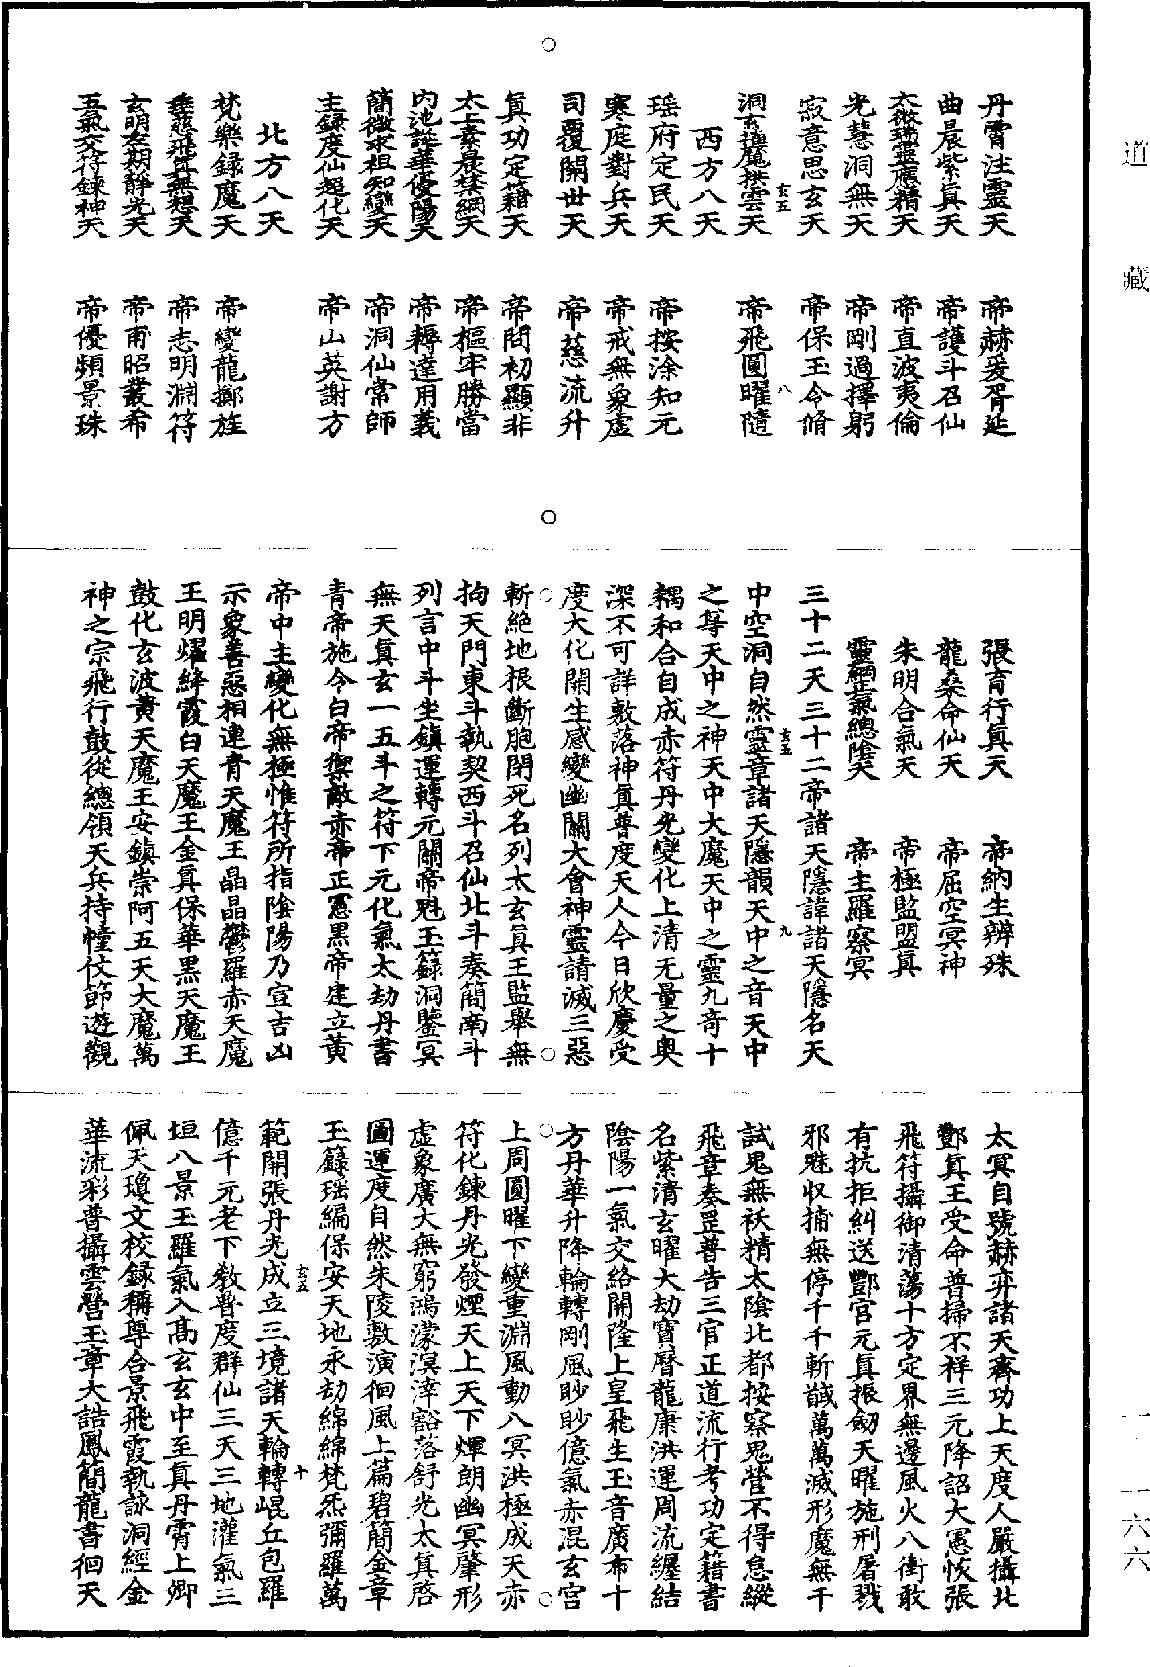 道藏
丹霄注靈天　帝赫爰胥延
曲晨紫真天　帝護斗召仙
太微瑞靈應精天　帝直波夷倫
光慧洞無天　帝剛過擇躬
寂意思玄天　帝保玉令脩
玄五　八
洞玄攝魔拱雲天　帝飛圓曜隨
西方八天
瑶府定民天　帝按涂知元
寒庭對兵天　帝戒無象虛
司覆開世天　帝慈流升
真功定籍天　帝問初顯非
太上素晨禁網天　帝樞牢勝當
內池誕華優陽天　帝耨達用義
簡微求祖知變天　帝洞仙常師
主録度仙超化天　帝山英謝方
北方八天
梵樂録魔天　帝變龍擲旌
垂慈飛真無想天　帝志明淵符
玄明冬期靜光天　帝甫昭叢希
五氣交符鍊神天　帝優頻景珠
張育行真天　帝納生辨殊
龍桑命仙天　帝屈空冥神
朱明合氣天　帝極監盟真
靈網炁總陰天　帝主羅察冥
三十二天三十二帝諸天隱諱諸天隱名天
玄五　九
中空洞自然靈章諸天隱韻天中之音天中
之尊天中之神天中大魔天中之靈九奇十
耦和合自成赤符丹光變化上清无量之奧
深不可詳敷落神真普度天人今日欣慶受
度大化開生感變幽關大會神靈請滅三惡
斬絶地根斷胞閉死名列太玄真王監舉無
拘天門東斗執契西斗召仙北斗奏簡南斗
列言中斗坐鎮運轉元關帝魁玉籙洞鑒冥
無天真玄一五斗之符下元化氣太劫丹書
青帝施令白帝禦敵赤帝正憲黑帝建立黃
帝中主變化無極惟符所指陰陽乃宣吉凶
示象善惡相連青天魔王晶晶鬱羅赤天魔
王明燿絳霞白天魔王金真保華黑天魔王
鼓化玄波黃天魔王安鎮崇阿五天大魔萬
神之宗飛行鼓從總領天兵持幢仗節遊觀
太冥自號赫弈諸天齊功上天度人嚴攝北
酆真王受命普掃不祥三元降詔大憲恢張
飛符攝御清蕩十方定界無邊風火八衝敢
有抗拒糾送酆宮元真振劒天曜施刑屠戮
邪魅收捕無停千千斬馘萬萬滅形魔無干
試鬼無袄精太陰北都按察鬼營不得怠縱
飛章奏罡普告三官正道流行考功定籍書
名紫清玄曜大劫寶曆龍康洪運周流纏結
陰陽一氣交絡開隆上皇飛生玉音廣布十
方丹華升降輪轉剛風眇眇億氣赤混玄宮
上周圓曜下變重淵風動八冥洪極成天赤
符化鍊丹光發煙天上天下煇朗幽冥肇形
虛象廣大無窮鴻濛溟涬豁落舒光太真啓
圖運度自然朱陵敷演徊風上篇碧簡金章
玉籙瑶編保安天地永劫綿綿梵炁彌羅萬
玄五　十
範開張丹光成立三境諸天輪轉崐丘包羅
億千元老下教普度群仙三天三地灌氣三
垣八景玉羅氣入高玄玄中至真丹霄上卿
佩天瓊文校録稱尊合景飛霞執詠洞經金
華流彩普攝雲營玉章大誥鳳簡龍書徊天
一 — 一六六